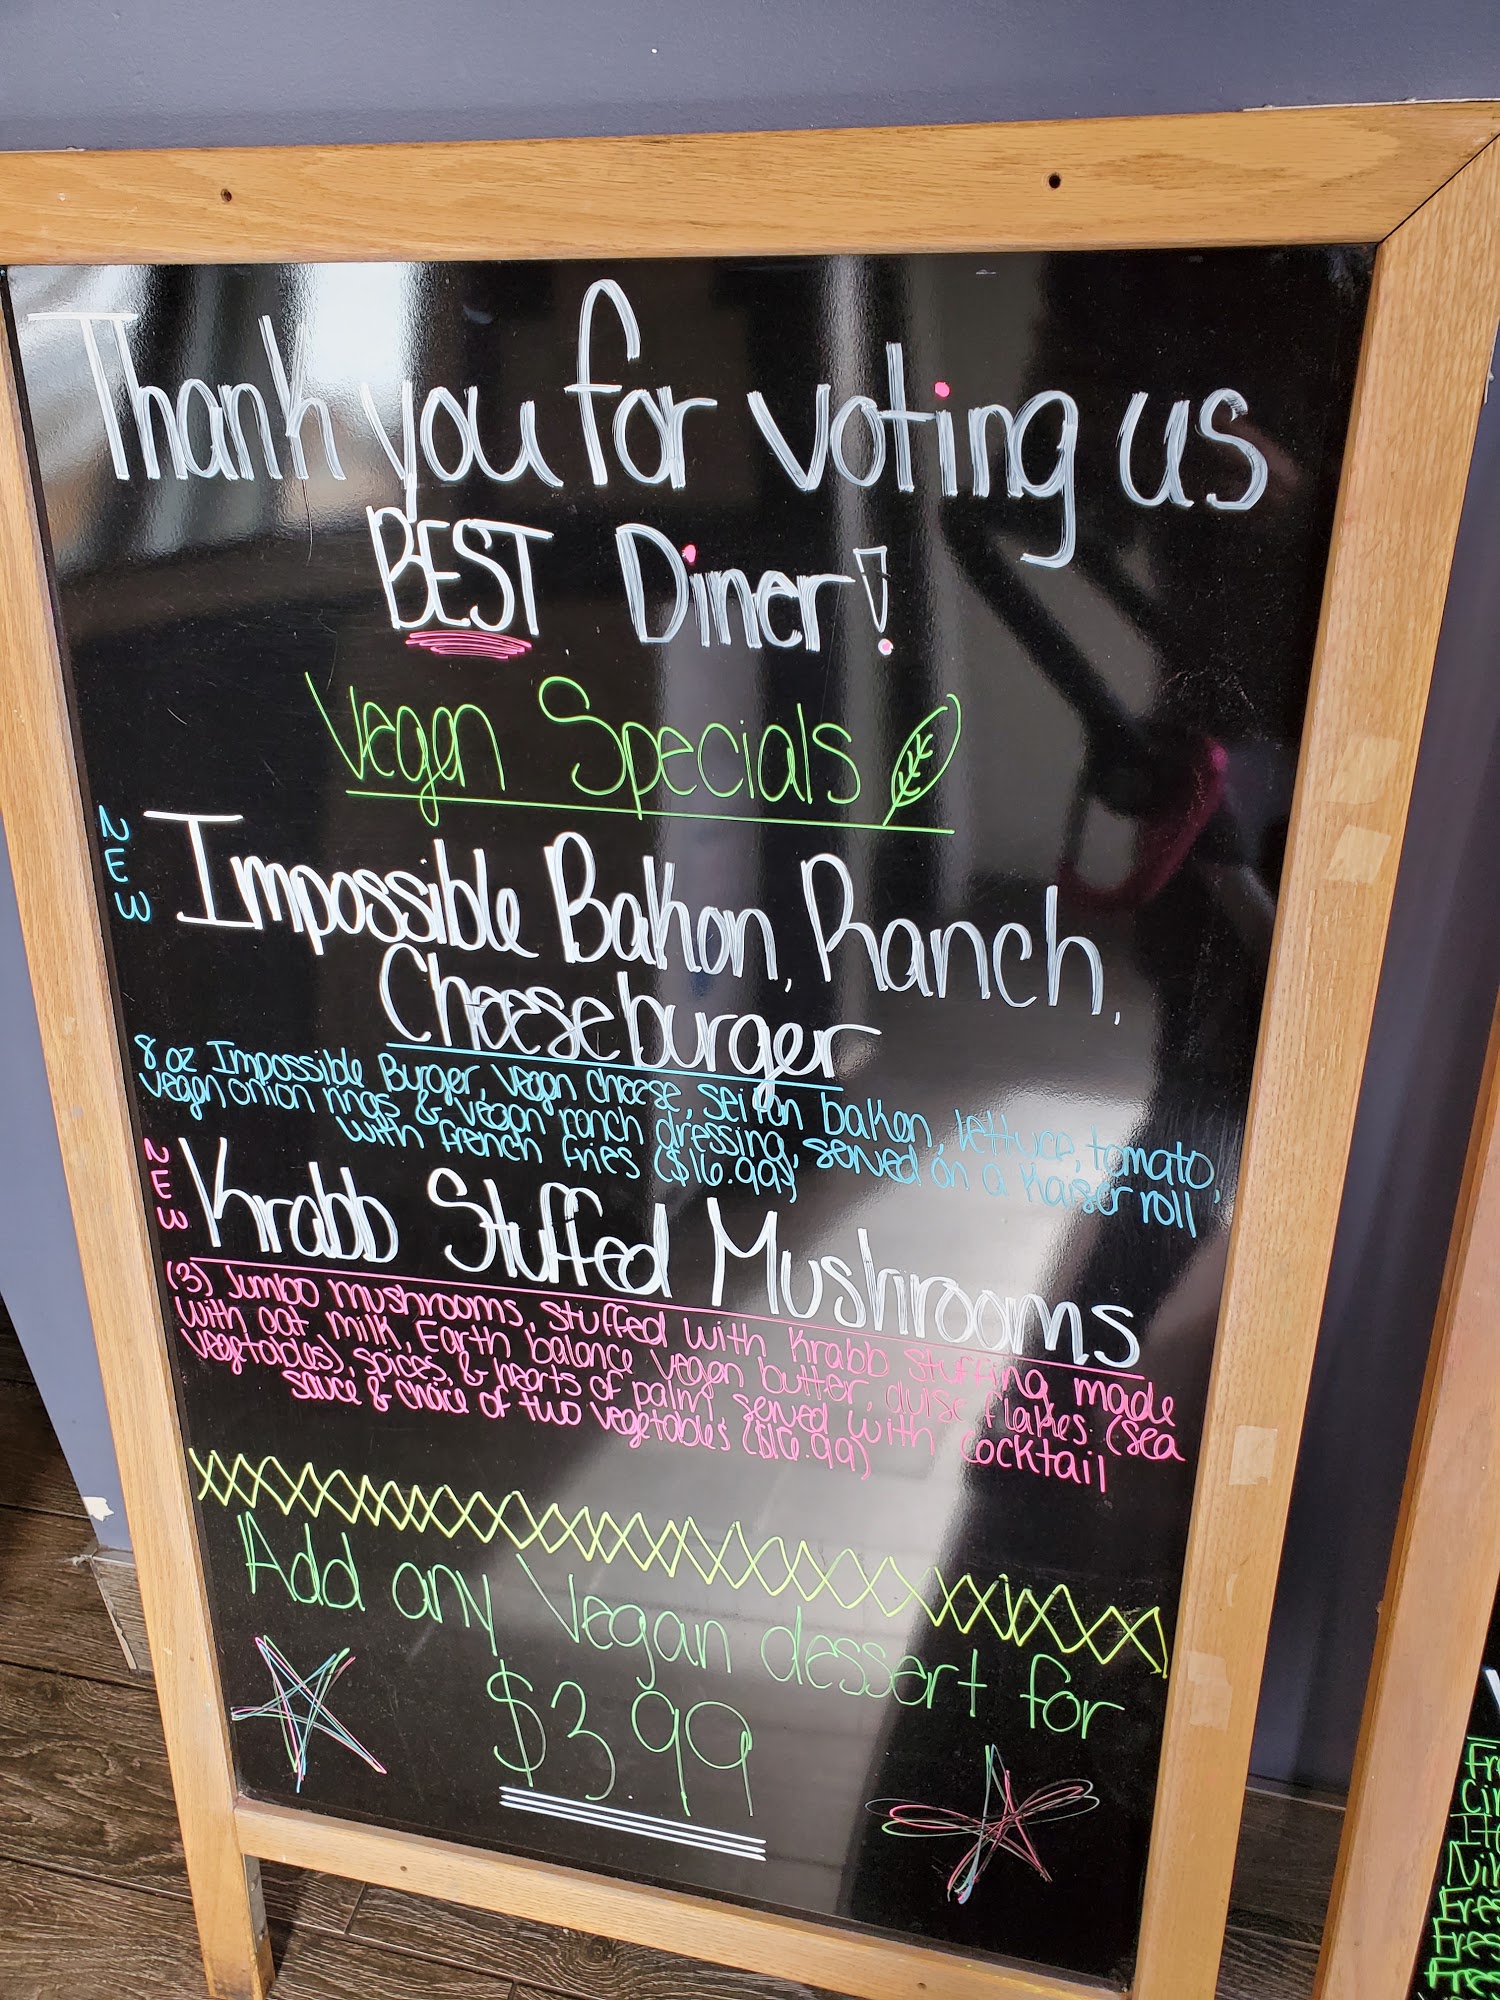 Thank you for voting us
BEST Diner!
Vegan Specials
NEW
Impossible Bakon, Ranch,
Cheeseburger
8 oz Impossible Burger, vegan cheese, seitan bakon, lettuce, tomato,
vegan onion rings & vegan ranch dressing, served on a kaiser roll
with french fries ($16.99)
NEW
Krabb Stuffed Mushrooms
(3) Jumbo mushrooms, stuffed with Krabb stuffing, made
with oat milk, Earth balance vegan butter, dulse flakes (sea
vegetables), spices, & hearts of palm, served with cocktail
sauce & choice of two vegetables ($16.99)
Add any Vegan dessert for
$3.99